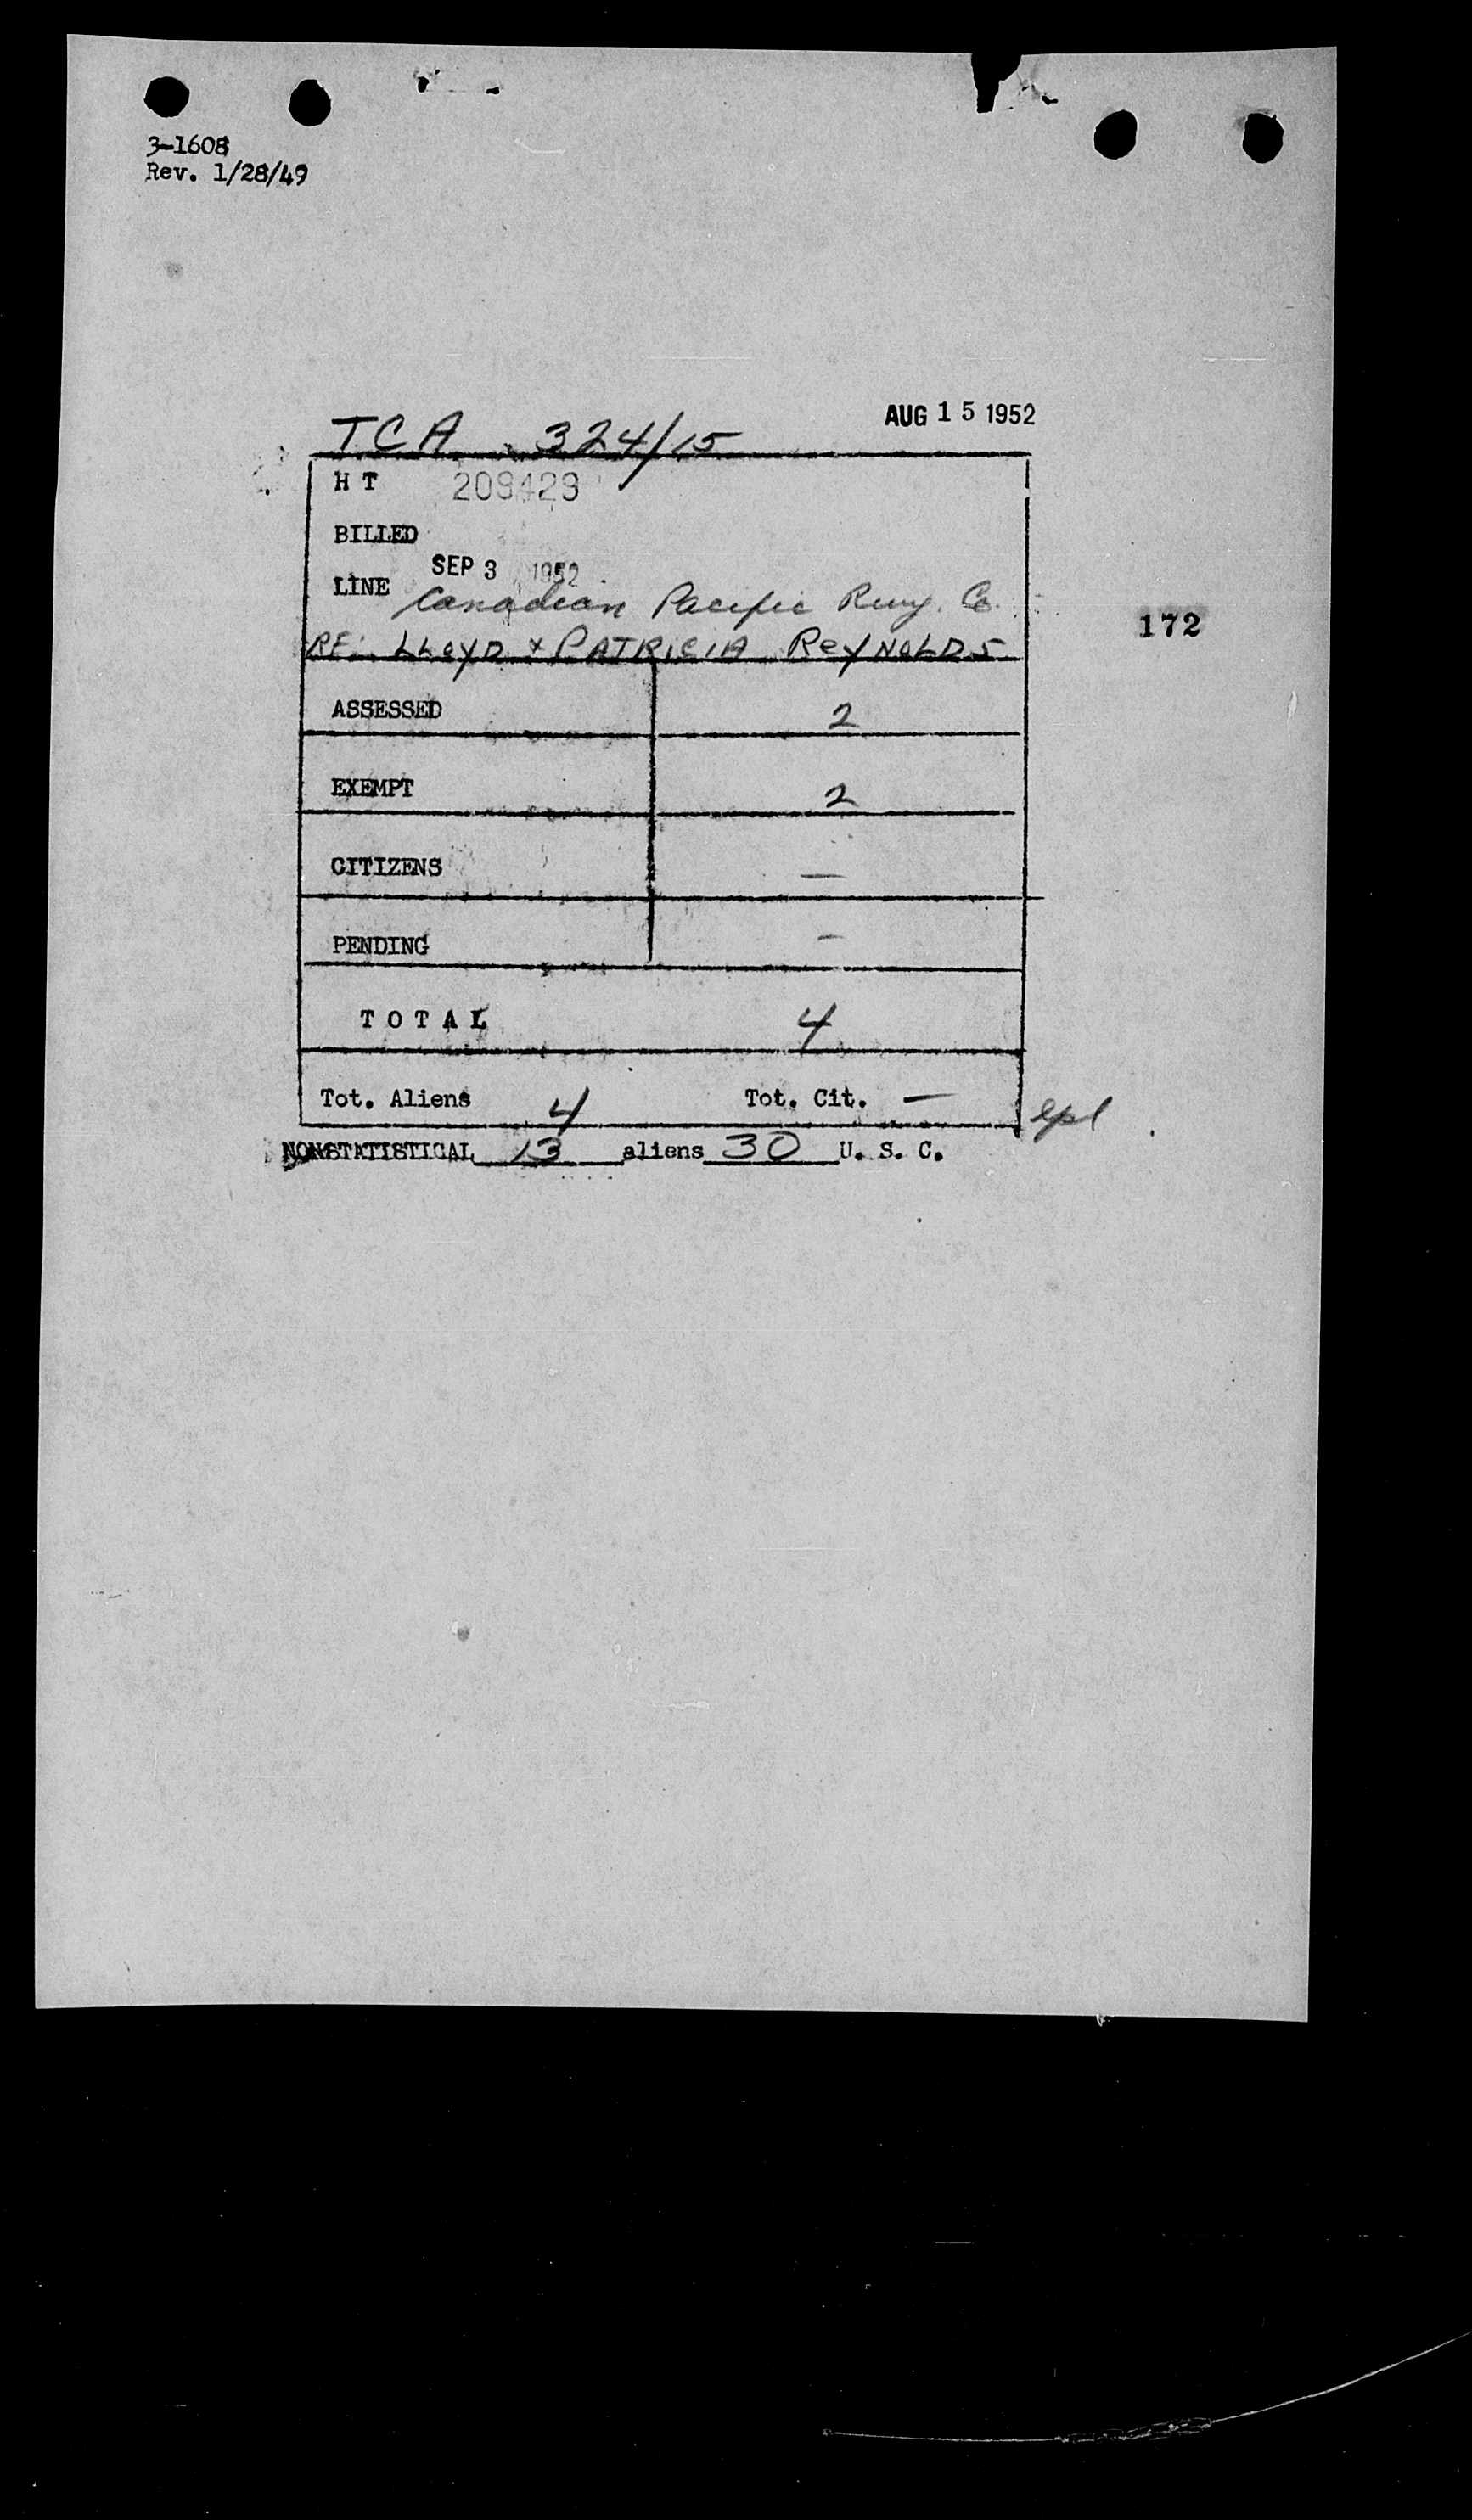 3-1608
Rev. 1/28/49
AUG 15 1952
TCA 324/15
H T 209429
BILLED
SEP 3 1952
LINE Canadian Pacific Rwy. Co.
172
RE: LLOYD & PATRICIA REYNOLDS
ASSESSED 2
EXEMPT 2
CITIZENS —
PENDING –
TOTAL 4
Tot. Aliens 4 Tot. Cit. —
NONSTATISTICAL 13 aliens 30 U. S. C.